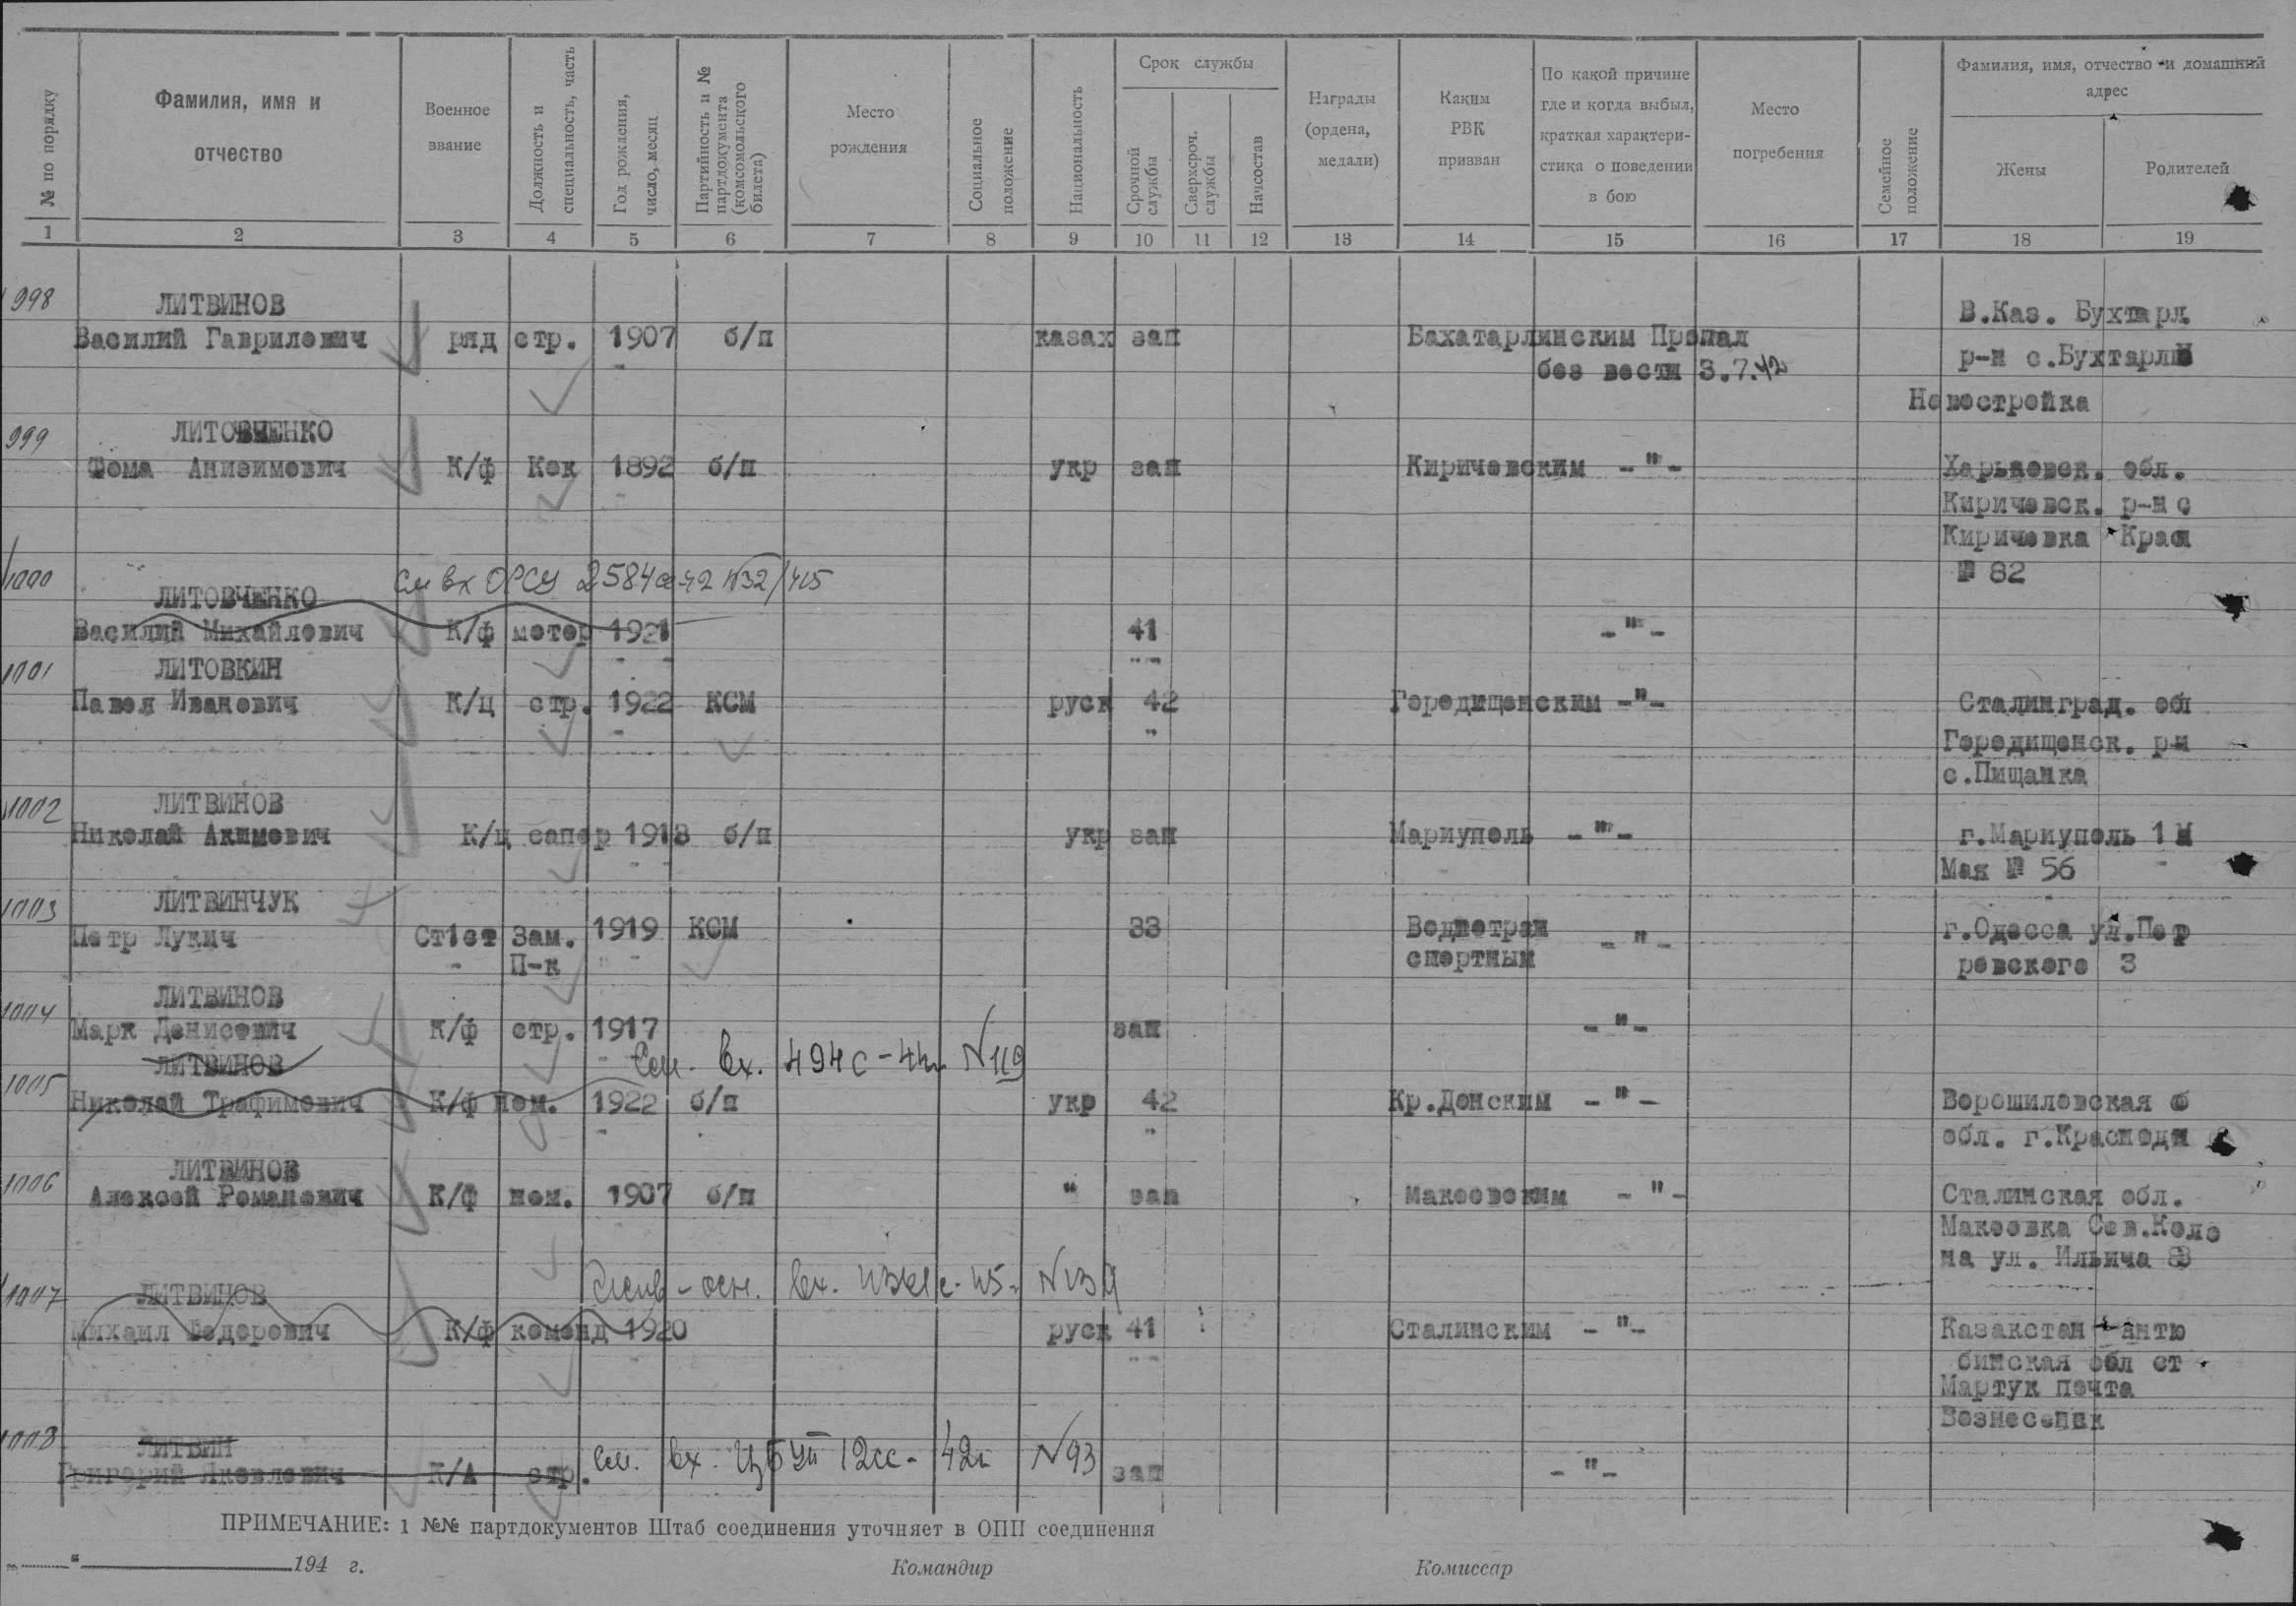 № по порядку
Фамилия, имя и
отчество
Военное
звание
Должность и
специальность, часть
Год рождения,
число, месяц
Партийность и №
партдокумента
(комсомольского
билета)
Место
рождения
Социальное
положение
Национальность
Срок службы
Срочной
службы
Сверхсроч.
службы
Начсостав
Награды
(ордена,
медали)
Каким
РВК
призван
По какой причине
где и когда выбыл,
краткая характери-
стика о поведении
в бою
Место
погребения
Семейное
положение
Фамилия, имя, отчество и домашний
адрес
Жены
Родителей
1 2 3 4 5 6 7 8 9 10 11 12 13 14 15 16 17 18 19
998 ЛИТВИНОВ В.Каз. Бухтарл
Василий Гаврилович ряд стр. 1907 б/п казах зап Бахатарлинским Пропал р-н с.Бухтарли
без вести 3.7.42
Новостройка
999 ЛИТОВЧЕНКО
Фома Анизимович К/ф Кок 1892 б/п укр зап Киричевским -"- Харьковск. обл.
Киричевск. р-н с
Киричевка Крас
№ 82
1000 См вх ОРСУ 2584с-42
ЛИТОВЧЕНКО
Василий Михайлович К/ф мотор 1921 41 -"-
1001 ЛИТОВКИН
Павел Иванович К/ц стр. 1922 КСМ руск 42 Городищенским -"- Сталинград. обл
Городищенск. рн
с.Пищанка
1002 ЛИТВИНОВ
Николай Акимович К/ц сапер 1918 б/п укр зап Мариуполь -"- г.Мариуполь 1 М
Мая № 56
1003 ЛИТВИНЧУК
Петр Лукич Ст1ст Зам. 1919 КСМ 33 Воднотран -"- г.Одесса ул.Пер
П-к спортным ровского 3
1004 ЛИТВИНОВ
Марк Денисович К/ф стр. 1917 зап -"-
ЛИТВИНОВ См. вх. 494с-44г №119
1005 Николай Трафимович К/ф пом. 1922 б/п укр 42 Кр.Донским -"- Ворошиловская
обл. г.Краснодн
1006 ЛИТВИНОВ
Алексей Романович К/ф пом. 1907 б/п " зап Макеевским -"- Сталинская обл.
Макеевка Сев.Коло
на ул. Ильича 83
1007 ЛИТВИНОВ
Михаил Федорович К/ф команд 1920 руск 41 Сталинским -"- Казакстан Актю
бинская обл ст
Мартук почта
Вознесенск
1008 ЛИТВИН
Григорий Яковлевич К/А стр. См. вх. 42г №93 зап -"-
ПРИМЕЧАНИЕ: 1 №№ партдокументов Штаб соединения уточняет в ОПП соединения
"____"____________194 г. Командир Комиссар